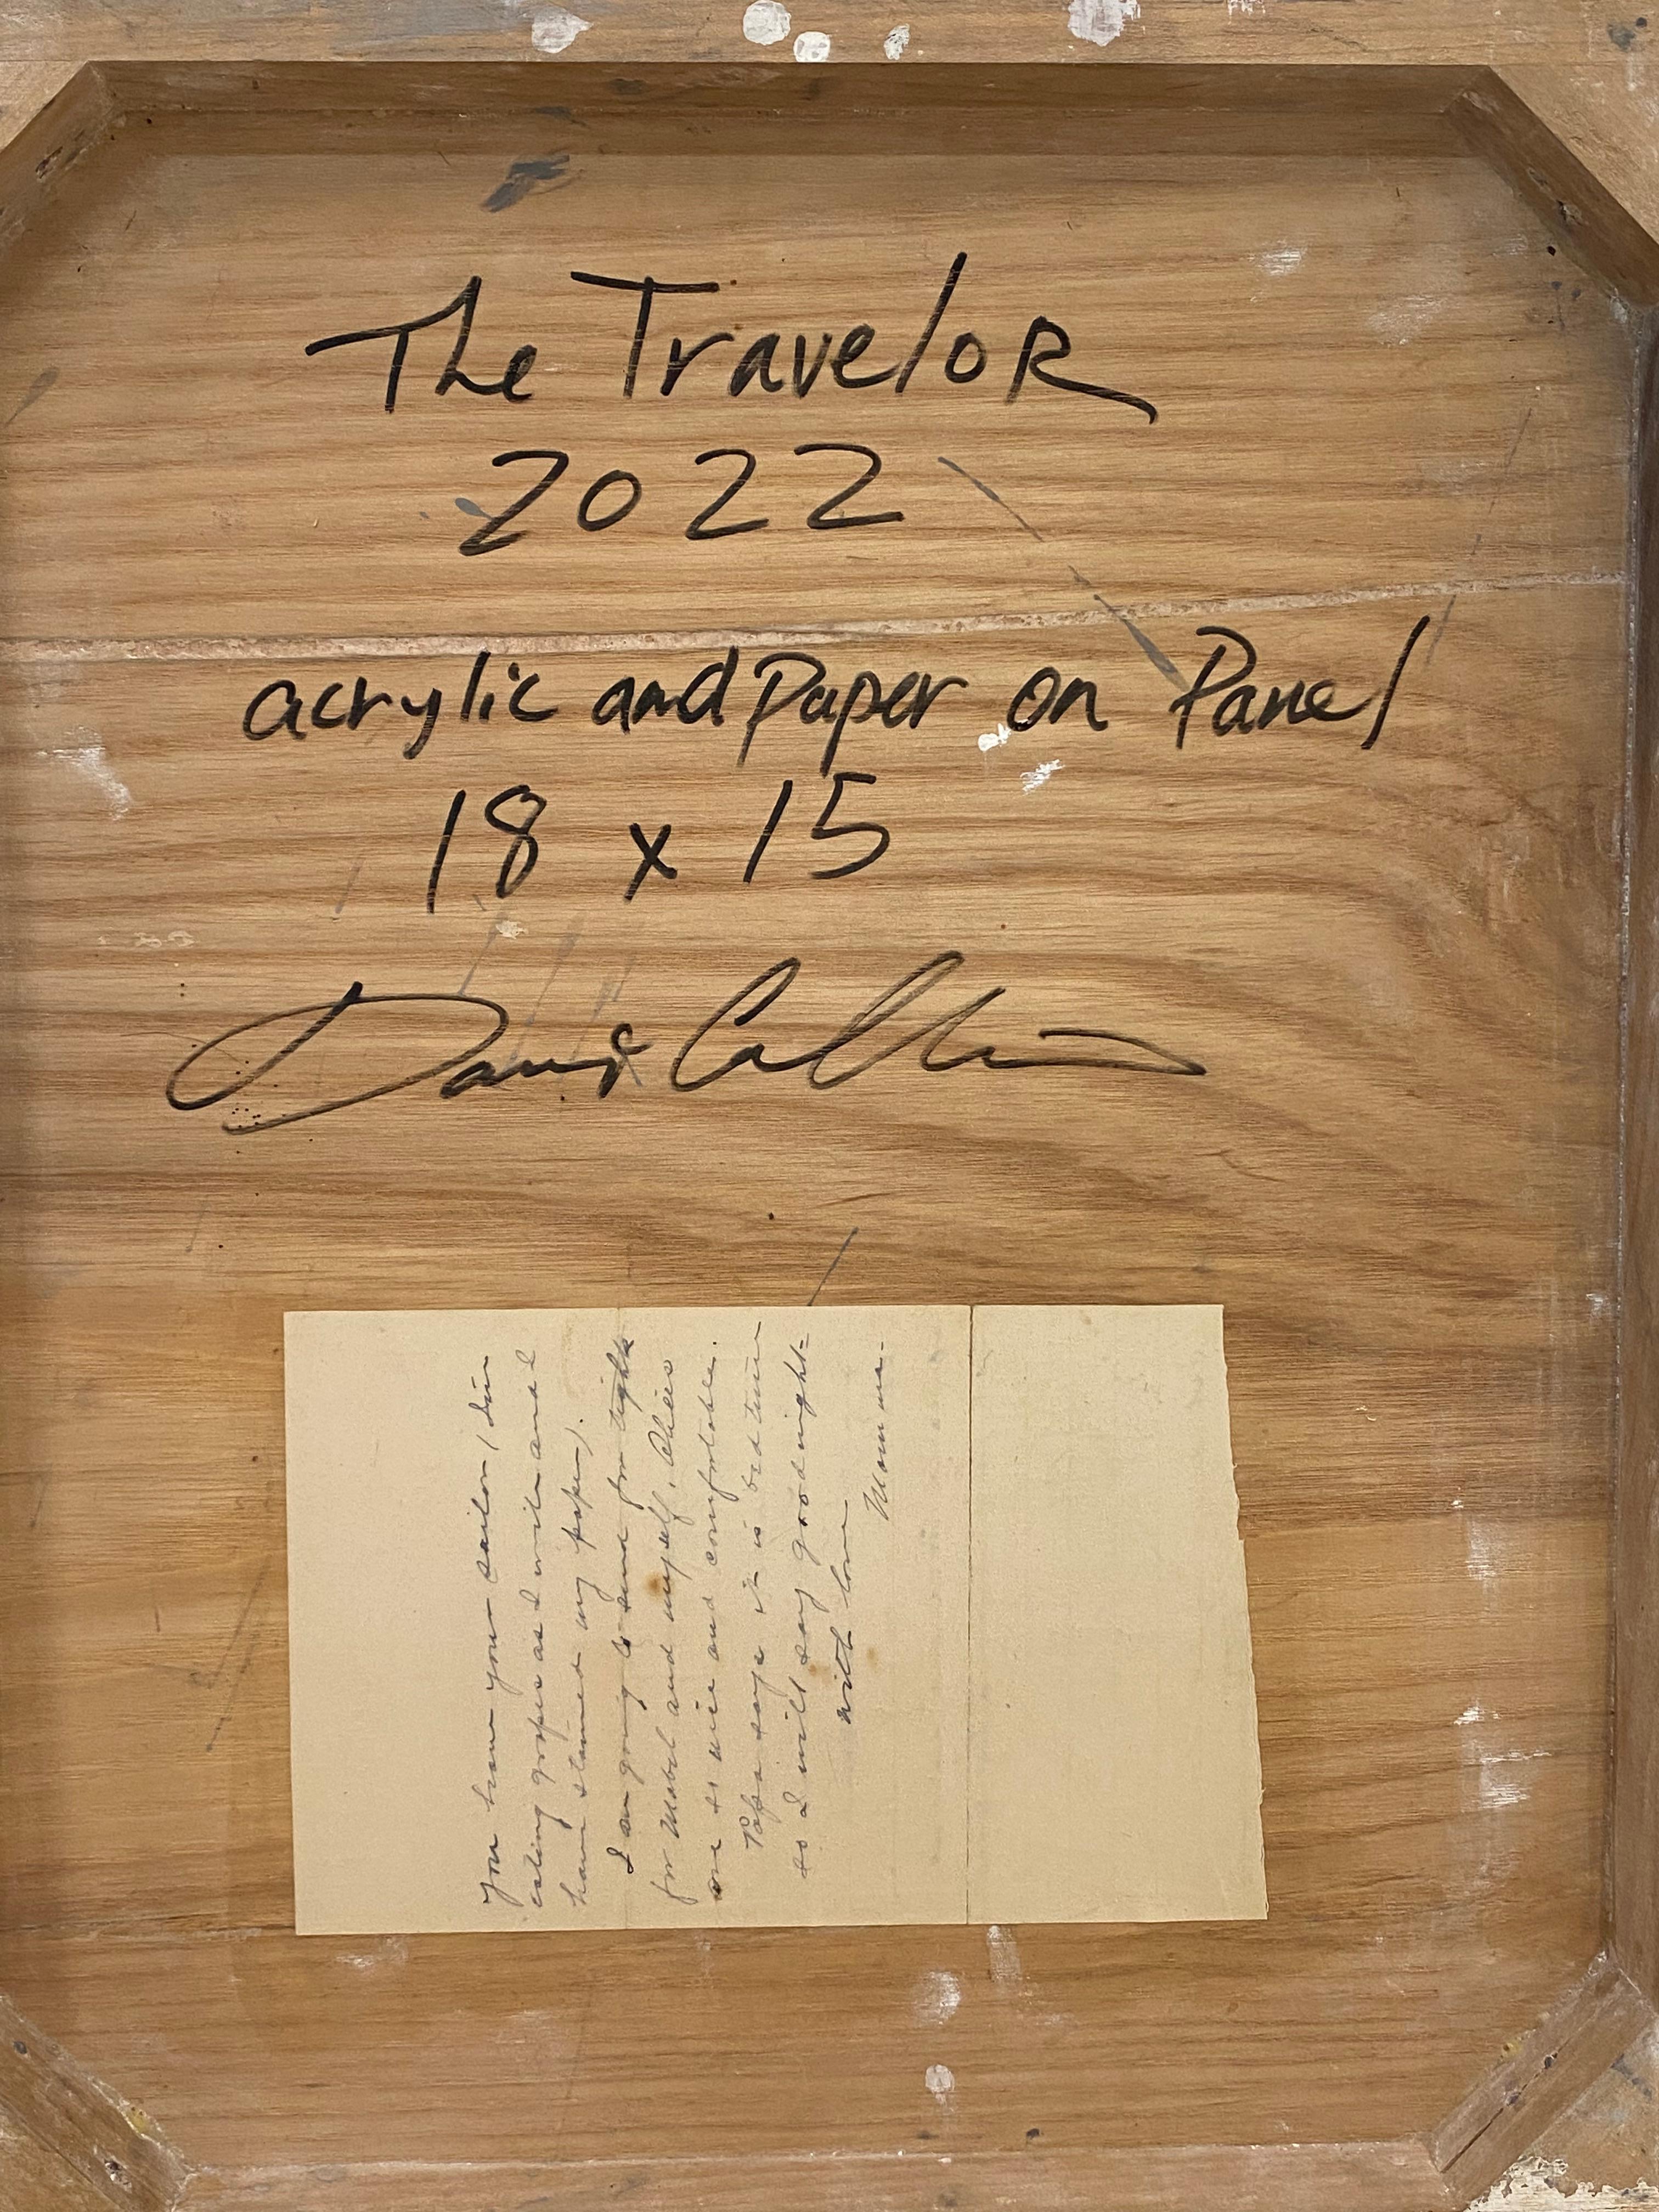 The TraveloR
2022
acrylic and Paper on Panel
18 x 15
David
you have your sailor
eating grapes as I write and I
have stained my paper).
I am going to send for tights
for Mabel and myself,
one is nice and comfortable.
Papa says it is bed time
so I will say good night-
with love
Mamma.